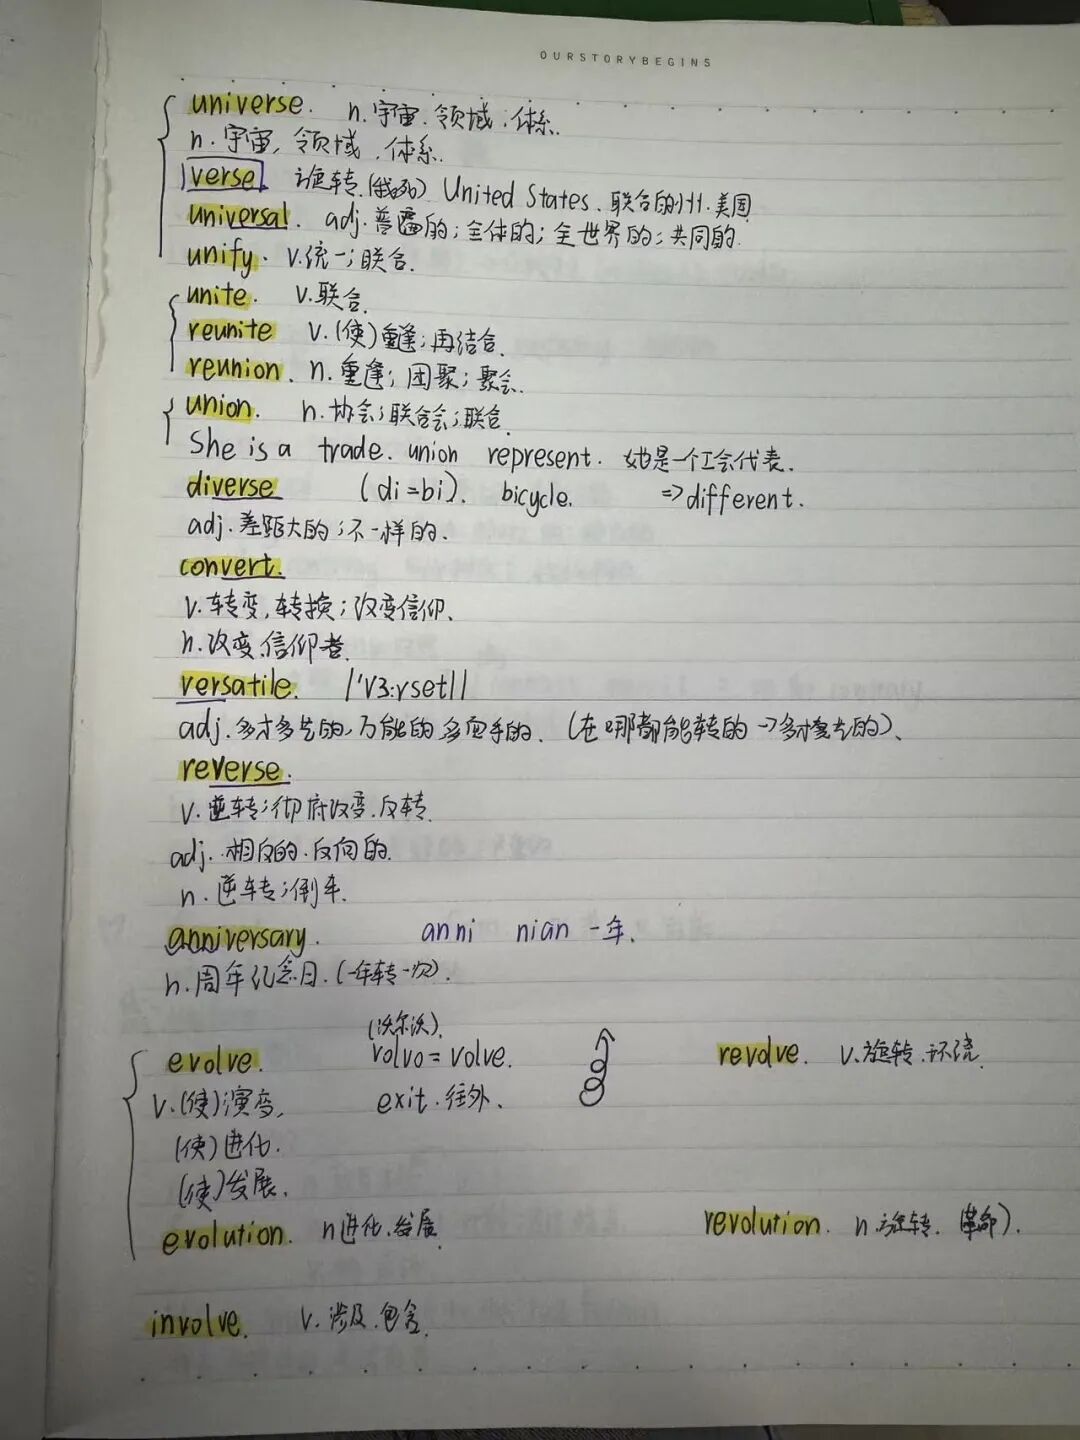 OURSTORYBEGINS
universe. n.宇宙.领域;体系.
n.宇宙,领域.体系.
verse. 旋转. United States、联合的州.美国
universal. adj.普遍的;全体的;全世界的;共同的.
unify. v.统一;联合.
unite. v.联合.
reunite v.(使)重逢;再结合.
reunion. n.重逢;团聚;聚会.
union. n.协会;联合会;联合.
She is a trade. union represent. 她是一个工会代表.
diverse (di=bi). bicycle. =>different.
adj.差距大的;不一样的、
convert.
v.转变,转换;改变信仰、
n.改变信仰者.
versatile. /'vɜ:rsetl/
adj.多才多艺的,万能的 多面手的、(在哪都能转的→多才多艺的)、
reverse.
v.逆转;彻底改变.反转.
adj.相反的.反向的.
n.逆转;倒车.
anniversary. anni nian 一年、
n.周年纪念日.(一年转一次).
(沃尔沃).
evolve. volvo=volve. revolve. v.旋转.环绕.
v.(使)演变, exit.往外、
(使)进化.
(使)发展.
evolution. n进化.发展. revolution. n.旋转.(革命).
involve. v.涉及.包含.